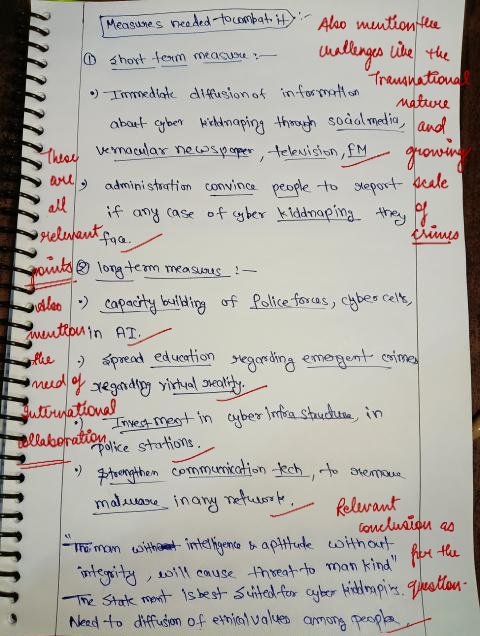 Measures needed to combat it :-
① Short term measure :-
•) Immediate diffusion of information
about cyber kiddnaping through social media,
vernacular newspaper, television, FM
•) administration convince people to report
if any case of cyber kiddnaping they
face.
② long term measures :-
•) capacity building of Police forces, cyber cells,
in AI.
•) spread education regarding emergent crimes
regarding virtual reality.
•) Investment in cyber infra structure, in
police stations.
•) strengthen communication tech, to remove
malware in any network.
"The man with intelligence & aptitude without
integrity, will cause threat to man kind"
The State ment is best suited for cyber kiddnaping.
Need to diffusion of ethical values among people.
Also mention the
challenges like the
Transnational
nature
and
growing
scale
of
crimes
These
are
all
relevant
points
Also
mention
the
need of
International
collaboration
Relevant
conclusion as
per the
question.